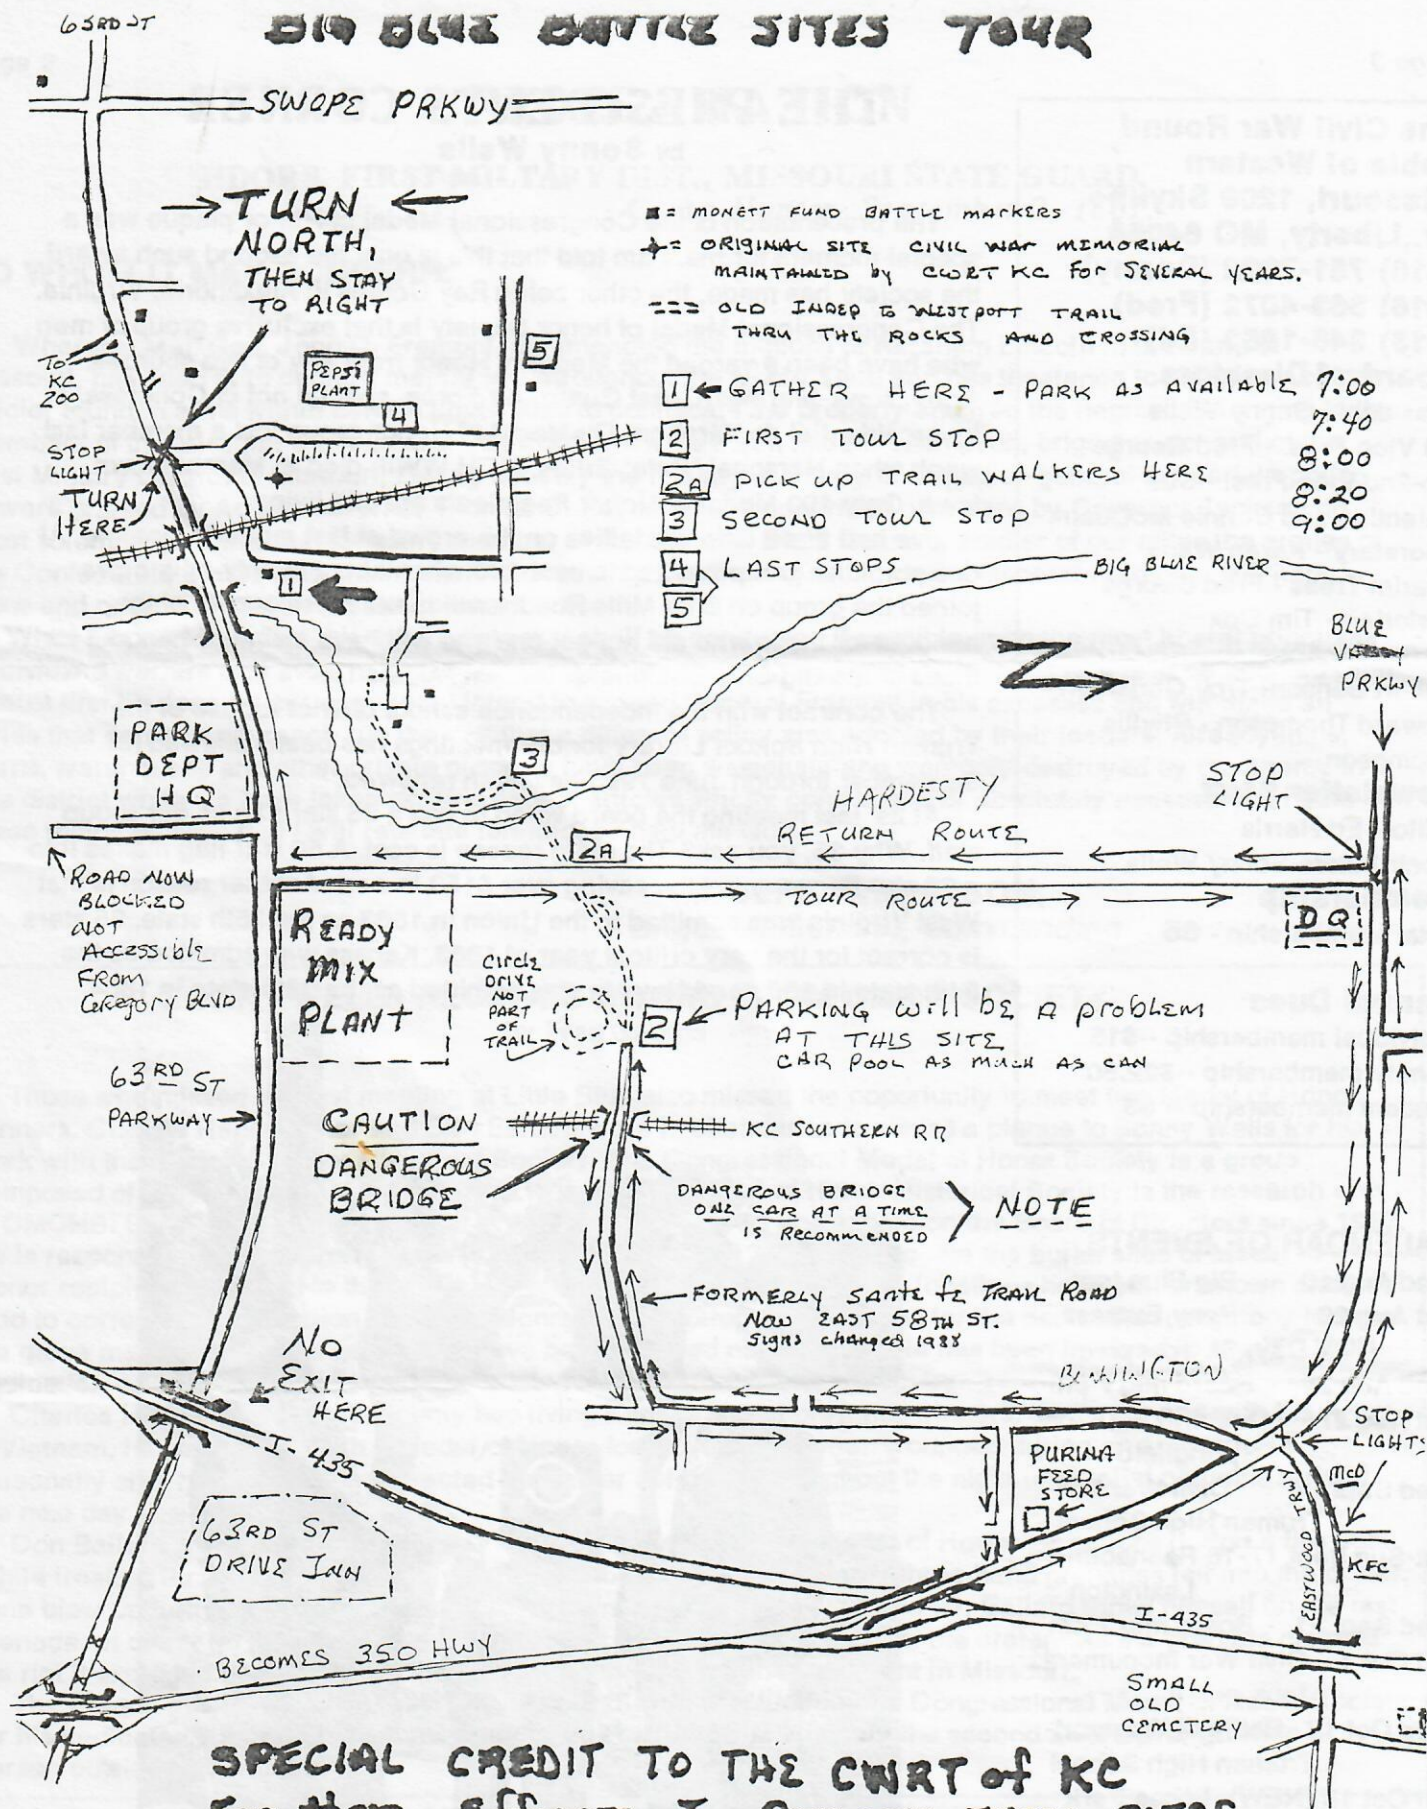 BIG BLUE BATTLE SITES TOUR
63RD ST
SWOPE PRKWY
TURN
NORTH,
THEN STAY
TO RIGHT
■ = MONETT FUND BATTLE MARKERS
= ORIGINAL SITE CIVIL WAR MEMORIAL
MAINTAINED by CWRT KC FOR SEVERAL YEARS.
--- OLD INDEP TO WESTPORT TRAIL
THRU THE ROCKS AND CROSSING
TO
KC
ZOO
PEPSI
PLANT
5
4
1 ← GATHER HERE - PARK AS AVAILABLE 7:00
7:40
2 FIRST TOUR STOP 8:00
2A PICK UP TRAIL WALKERS HERE 8:20
3 SECOND TOUR STOP 9:00
4 LAST STOPS
5
STOP
LIGHT
TURN
HERE
1
BIG BLUE RIVER
BLUE
PRKWY
PARK
DEPT
HQ
3
HARDESTY
STOP
LIGHT
2A
RETURN ROUTE
TOUR ROUTE
DQ
ROAD NOW
BLOCKED
NOT
ACCESSIBLE
FROM
Gregory BLVD
READY
MIX
PLANT
CIRCLE
DRIVE
NOT
PART
OF
TRAIL
2
PARKING WILL BE A PROBLEM
AT THIS SITE
CAR POOL AS MUCH AS CAN
63RD ST
PARKWAY
CAUTION
DANGEROUS
BRIDGE
KC SOUTHERN RR
DANGEROUS BRIDGE
ONE CAR AT A TIME
IS RECOMMENDED
NOTE
FORMERLY SANTE FE TRAIL ROAD
NOW EAST 58TH ST.
Signs changed 1988
NO
EXIT
HERE
BENNINGTON
I-435
STOP
LIGHTS
PURINA
FEED
STORE
McD
63RD ST
DRIVE INN
EASTWOOD TRWY
KFC
I-435
BECOMES 350 HWY
SMALL
OLD
CEMETERY
SPECIAL CREDIT TO THE CWRT of KC